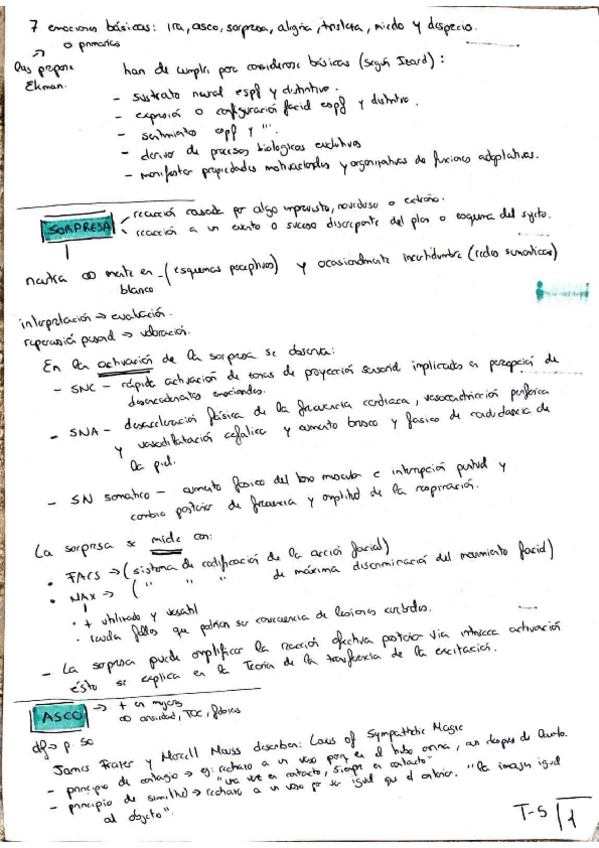 7 emociones básicas: ira, asco, sorpresa, alegría, tristeza, miedo y desprecio.
o primarias
las propone
Ekman.
han de cumplir para considerarse básicas (según Izard):
- sustrato neural espf y distintivo.
- expresión o configuración facial espf y distintiva.
- sentimientos espf y "".
- derivar de procesos biológicos evolutivos
- manifestar propiedades motivacionales y organizativas de funciones adaptativas.
SORPRESA
reacción causada por algo imprevisto, novedoso o extraño.
reacción a un evento o suceso discrepante del plan o esquema del sujeto.
neutra ∞ mente en - (esquemas perceptivos) y ocasionalmente incertidumbre (redes semánticas)
blanco
interpretación → evaluación.
repercusión personal → valoración.
En la activación de la sorpresa se observa:
- SNC - rápida activación de zonas de proyección sensorial implicadas en percepción de
desencadenantes emocionales.
- SNA - desaceleración fásica de la frecuencia cardiaca, vasoconstricción periférica
y vasodilatación cefálica y aumento brusco y fásico de conductancia de
la piel.
- SN somático - aumento fásico del tono muscular e interrupción puntual y
cambio posterior de frecuencia y amplitud de la respiración.
La sorpresa se mide con:
• FACS → (sistema de codificación de la acción facial)
• MAX → ( " " " de máxima discriminación del movimiento facial)
• + utilizado y versátil
• revela fallos que podrían ser consecuencia de lesiones cerebrales.
- La sorpresa puede amplificar la reacción afectiva posterior vía intensa activación
ésto se explica en la Teoría de la transferencia de la excitación.
ASCO
→ + en mujeres
∞ ansiedad, TOC, fobias
df → p. 50
James Frazer y Marcell Mauss describen: Laws of Sympathetic Magic
- principio de contagio → ej: rechazo a un vaso porq en él hubo orina, aun después de lavarlo.
"una vez en contacto, siempre en contacto"
- principio de similitud → rechazo a un vaso por ser igual que el anterior. "la imagen igual
al objeto".
T-5 / 1